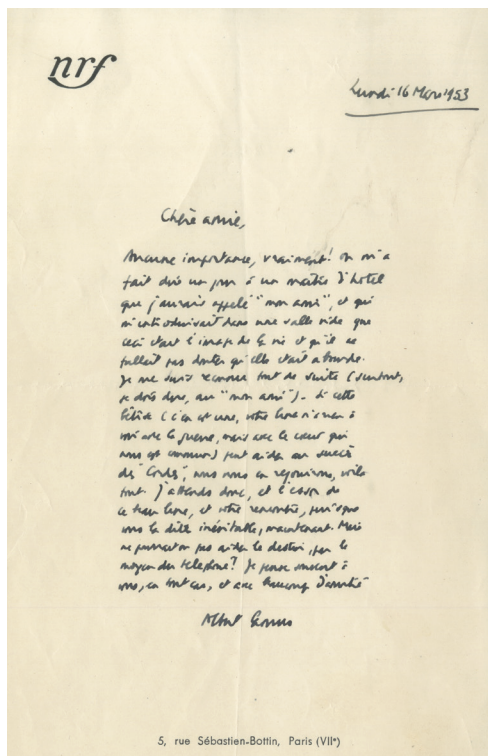 nrf
Lundi 16 Mars 1953
Chère amie,
Aucune importance, vraiment! On m'a
fait dire un jour à un maître d'hôtel
que j'aurais appelé "mon ami", et qui
m'introduisait dans une salle vide que
ceci était l'image de la vie et qu'il ne
fallait pas douter qu'elle était absurde.
Je me suis reconnu tout de suite (surtout,
je dois dire, au "mon ami"). Si cette
bêtise (c'en est une, votre livre n'a rien à
voir avec la guerre, mais avec le cœur qui
nous est commun) peut aider au succès
des nous nous en réjouirons, voilà
tout. J'attends donc, et l'essor de
ce beau livre, et votre rencontre, puisque
vous la dites inévitable, maintenant. Mais
ne pourrait on pas aider le destin, par le
moyen du téléphone? Je pense souvent à
vous, en tout cas, et avec beaucoup d'amitié
Albert Camus
5, rue Sébastien-Bottin, Paris (VIIe)